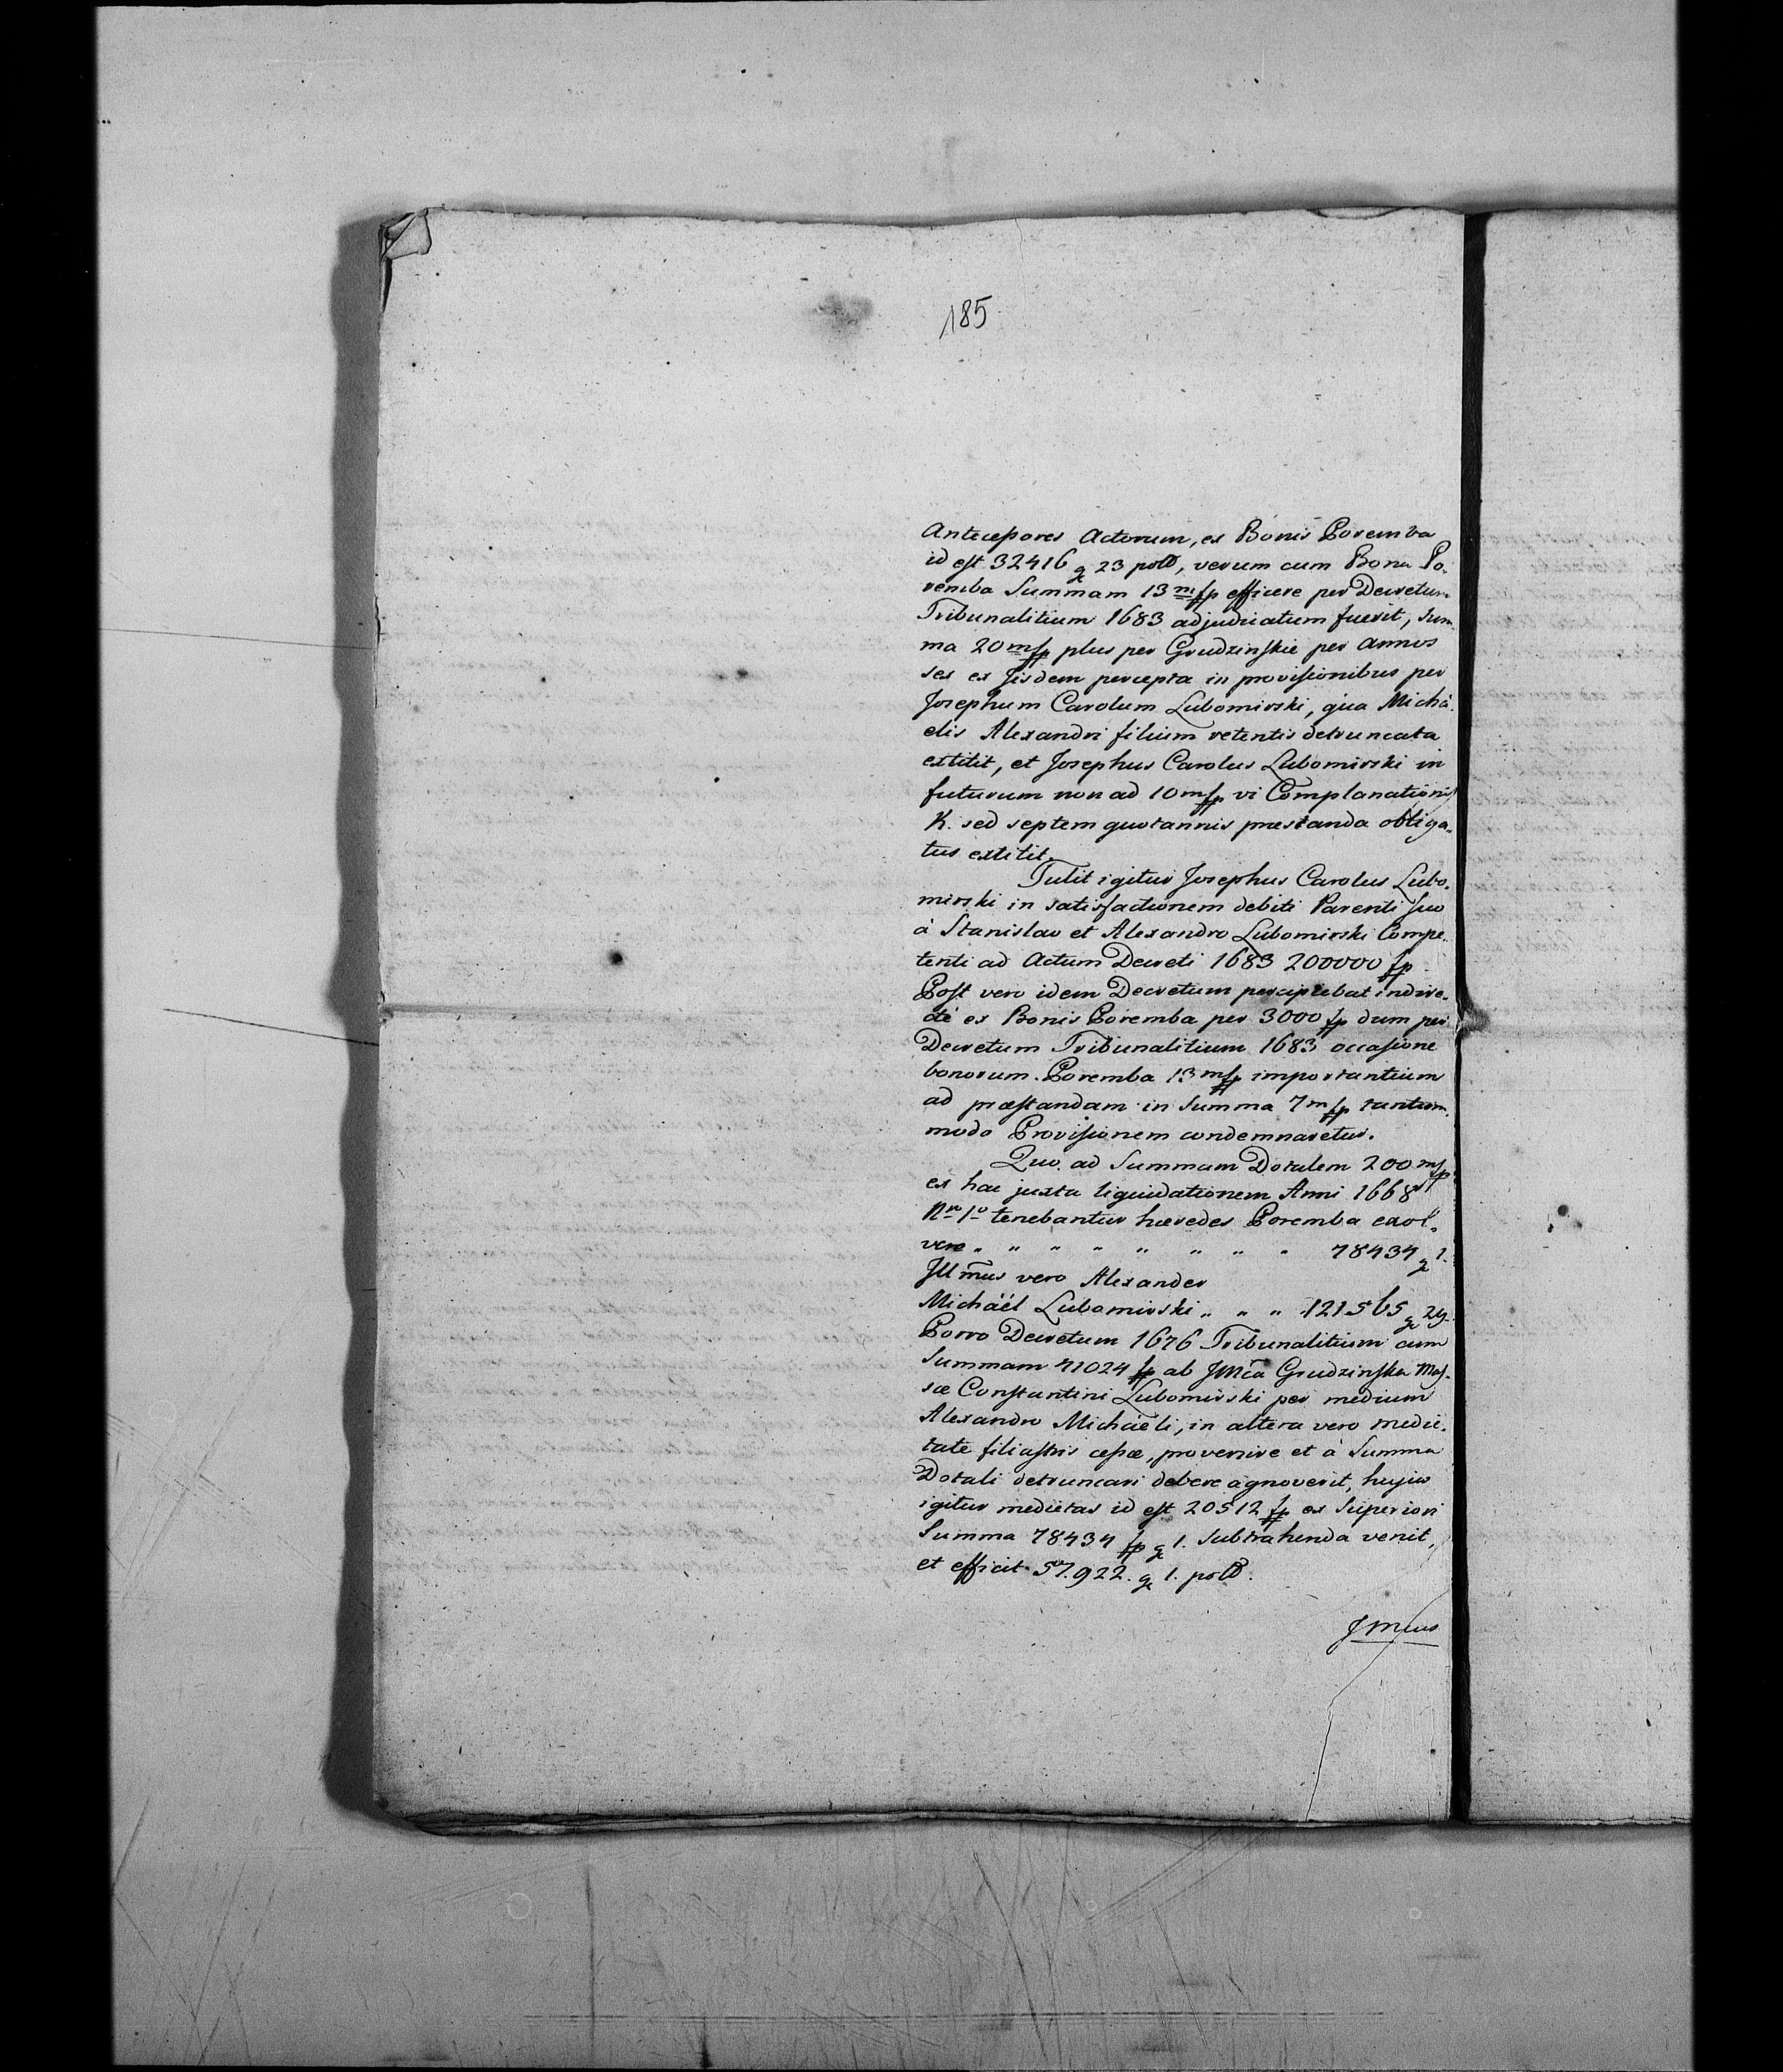 185
Antecessores Actorum, ex Bonis Poremba
id est 32416 g 23 pold, verum cum Bona Po-
remba Summam 13 m fp efficere per Decretum
Tribunalitium 1683 adjudicatum fuerit, sum-
ma 20 m fp plus per Grudzinskie per Annos
sex ex Jisdem percepta in provisionibus per
Josephum Carolum Lubomirski, qua Michà-
elis Alexandri filium retentis detruncata
extitit, et Josephus Carolus Lubomirski in
futurum non ad 10 m fp vi Complanationis
K. sed septem quotannis præstanda obliga-
tus extitit.
Tulit igitur Josephus Carolus Lubo-
mirski in satisfactionem debiti Parenti suo
à Stanislao et Alexandro Lubomirski Compe-
tenti ad Actum Decreti 1683 200000 fp
Post vero idem Decretum percipiebat indire-
cté ex Bonis Poremba per 3000 fp dum per
Decretum Tribunalitium 1683 occasione
bonorum Poremba 13 m fp importantium
ad præstandam in Summa 7 m fp tantum-
modo Provisionem condemnaretur.
Quo ad Summam Dotalem 200 m fp
ex hac juxta liquidationem Anni 1668
Nro 1o tenebantur hæredes Poremba exol-
vere " " " " " " " " 78434 g 1.
Jllmus vero Alexander
Michàél Lubomirski " " " 121565 g 29.
Porro Decretum 1676 Tribunalitium cum
Summam 41024 fp ab JMca Grudzinska Mas-
sæ Constantini Lubomirski per medium
Alexandro Michàéli, in altera vero medie-
tate filiastris cessæ, provenire et à Summa
Dotali detruncari debere agnoverit, hujus
igitur medietas id est 20512 fp ex Superiori
Summa 78434 fp g 1. subtrahenda venit,
et efficit 57.922. g 1. pold.